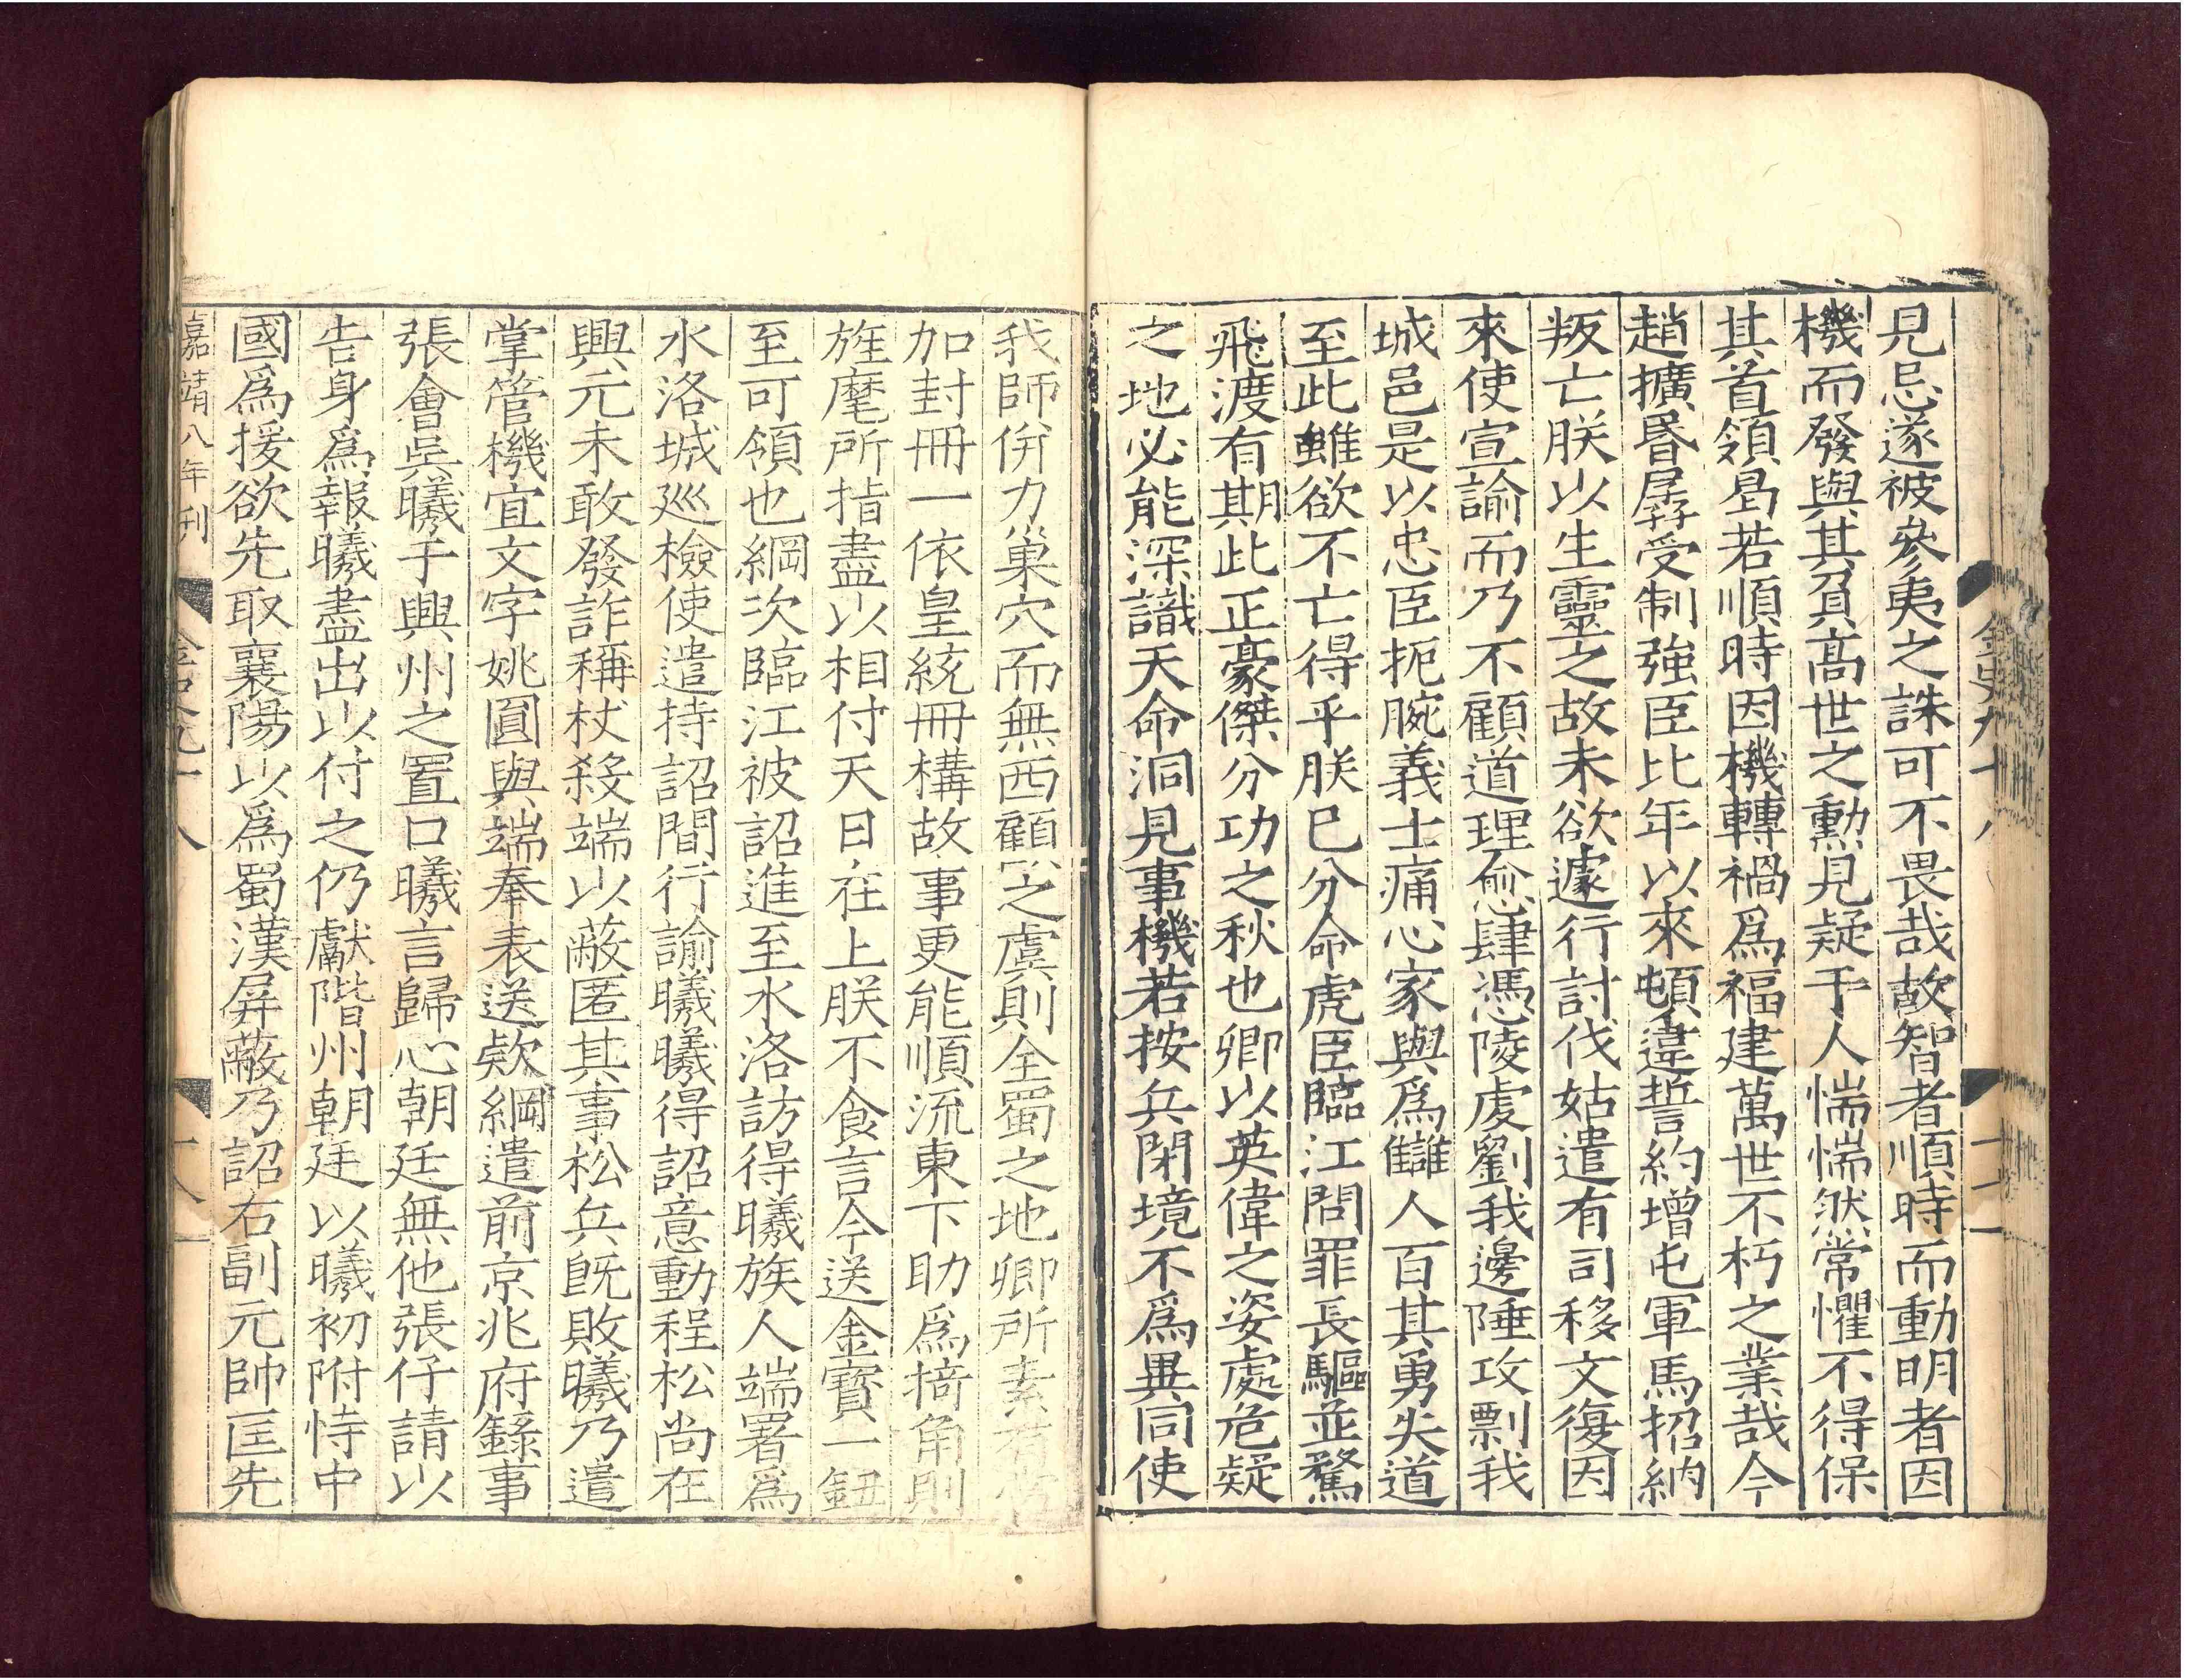 見忌遂被參夷之誅可不畏哉故智者順時而動明者因
機而發與其負高世之勳見疑于人惴惴然常懼不得保
其首領曷若順時因機轉禍爲福建萬世不朽之業哉今
趙擴昏孱受制強臣比年以來頓違誓約增屯軍馬招納
叛亡朕以生靈之故未欲遽行討伐姑遣有司移文復因
來使宣諭而乃不顧道理愈肆憑陵虔劉我邊陲攻剽我
城邑是以忠臣扼腕義士痛心家與爲讎人百其勇失道
至此雖欲不亡得乎朕已分命虎臣臨江問罪長驅並騖
飛渡有期此正豪傑分功之秋也卿以英偉之姿處危疑
之地必能深識天命洞見事機若按兵閉境不爲異同使
我師併力巢穴而無西顧之虞則全蜀之地卿所素有當
加封冊一依皇統冊構故事更能順流東下助爲掎角則
旌麾所指盡以相付天日在上朕不食言今送金寶一鈕
至可領也綱次臨江被詔進至水洛訪得曦族人端署爲
水洛城巡檢使遣持詔間行諭曦曦得詔意動程松尚在
興元未敢發詐稱杖殺端以蔽匿其事松兵既敗曦乃遣
掌管機宜文字姚圓與端奉表送款綱遣前京兆府錄事
張會吳曦于興州之置口曦言歸心朝廷無他張仔請以
告身爲報曦盡出以付之仍獻階州朝廷以曦初附恃中
國爲援欲先取襄陽以爲蜀漢屏蔽乃詔右副元帥匡先
嘉靖八年刊
金史九十八